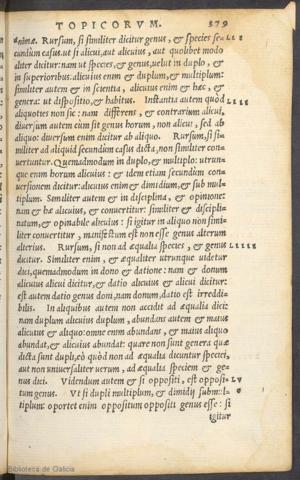 TOPICORVM. 379
animæ. Rursum, si similiter dicitur genus, & species se- LII
cundùm casus. ut si alicui, aut alicuius, aut quolibet modo
aliter dicitur: nam ut species, & genus, uelut in duplo, &
in superioribus: alicuius enim & duplum, & multiplum:
similiter autem & in scientia, alicuius enim & hæc, &
genera: ut dispositio, & habitus. Instantia autem quòd LIII
aliquoties non sic: nam differens, & contrarium alicui,
diuersum autem cùm sit genus horum, non alicui, sed ab
aliquo: diuersum enim dicitur ab aliquo. Rursum, si si-
militer ad aliquid secundùm casus dicta, non similiter con-
uertuntur. Quemadmodum in duplo, & multiplo: utrun-
que enim horum alicuius: & idem etiam secundùm con-
uersionem dicitur: alicuius enim & dimidium, & sub mul-
tiplum. Similiter autem & in disciplina, & opinione:
nam & hæ alicuius, & conuertitur: similiter & discipli-
natum, & opinabile alicuius: si igitur in aliquo non simi-
liter conuertitur, manifestum est non esse genus alterum
alterius. Rursum, si non ad æqualia species, & genus LIIII
dicitur. Similiter enim, & æqualiter utrunque uidetur
dici, quemadmodum in dono & datione: nam & donum
alicuius alicui dicitur, & datio alicuius & alicui dicitur:
est autem datio genus doni, nam donum, datio est irreddi-
bilis. In aliquibus autem non accidit ad æqualia dici:
nam duplum alicuius duplum, abundans autem & maius
alicuius & aliquo: omne enim abundans, & maius aliquo
abundat, & alicuius abundat: quare non sunt genera quæ
dicta sunt dupli, eò quòd non ad æqualia dicuntur speciei,
aut non uniuersaliter uerum, ad æqualia speciem & ge-
nus dici. Videndum autem & si oppositi, est opposi- LV
tum genus. Vt si dupli multiplum, & dimidij submul-
tiplum: oportet enim oppositum oppositi genus esse: si
igitur
Biblioteca de Galicia